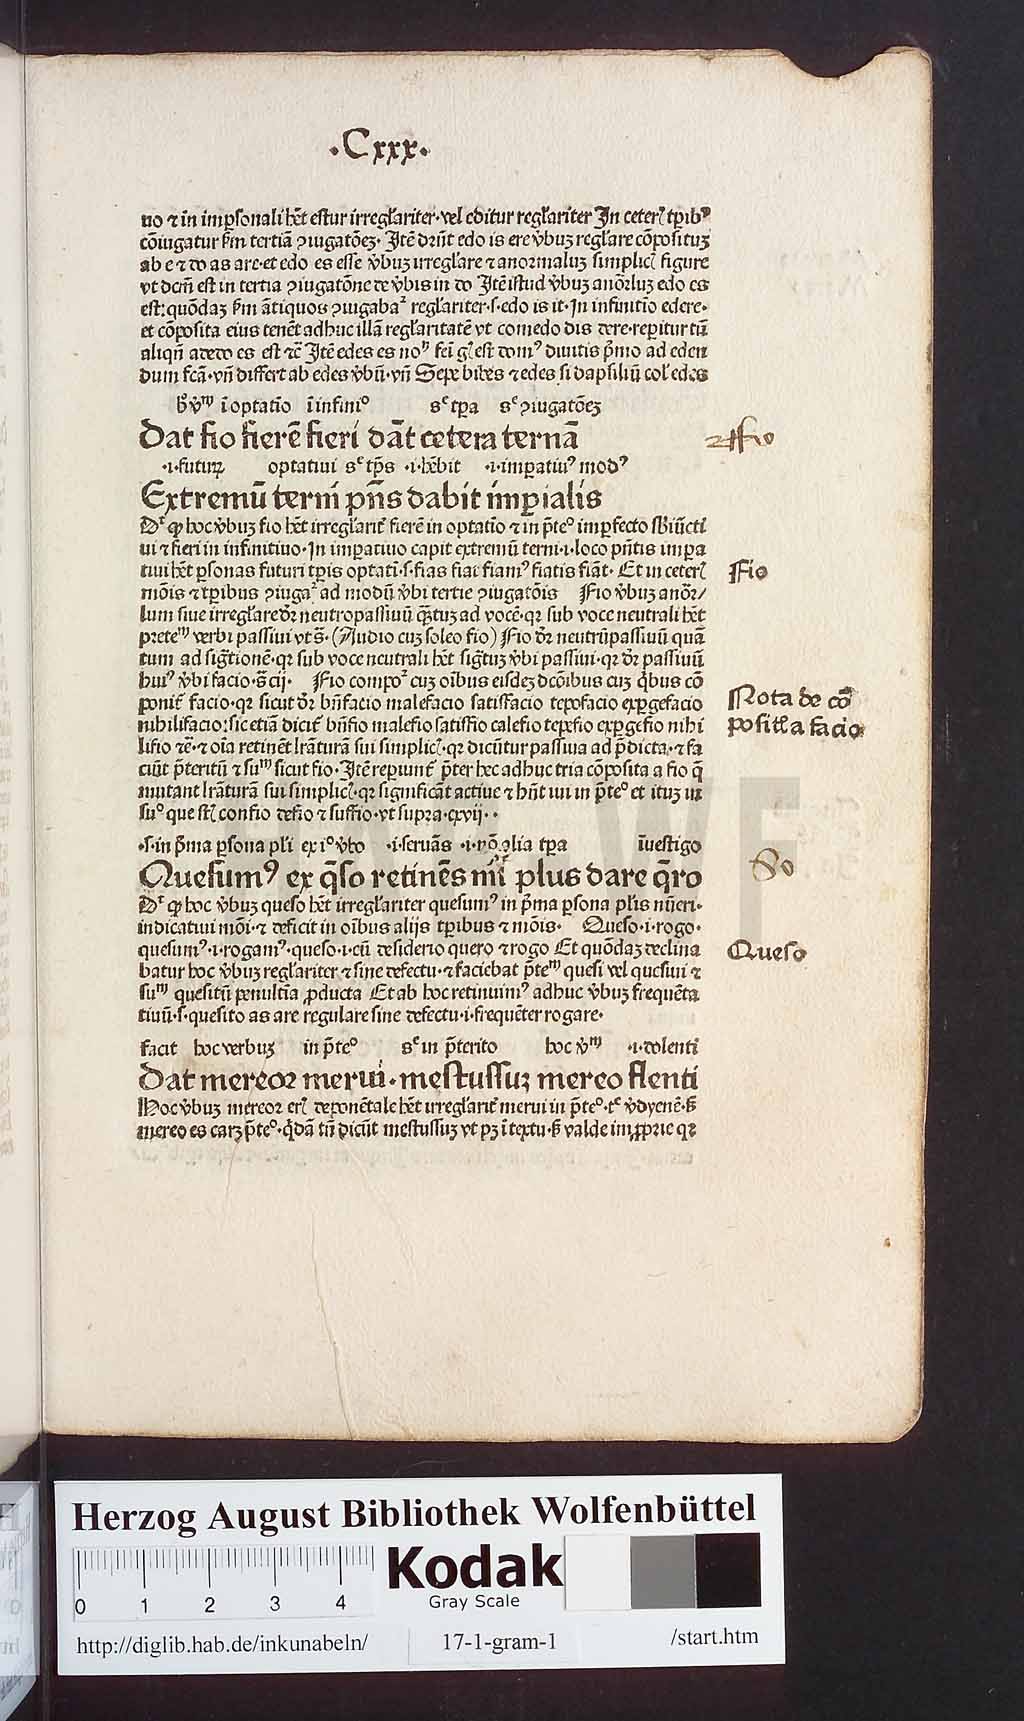 .Cxxx.
uo ⁊ in imꝑsonali hēt estur irregl'ariter. vel editur regl'ariter In ceterꝭ tꝑibꝰ
cōiugatur ẜm tertiā ꝯiugatōeꝫ. Itē drn̄t edo is ere v̄buꝫ regl'are cōpositus
ab e ⁊ do as are. et edo es esse v̄buꝫ irregl'are ⁊ anormaluꝫ simplicꝭ figure
vt dcm̄ est in tertia ꝯiugatōne de v̄bis in do Itē istud v̄buꝫ anōrluꝫ edo es
est: quōdaꝫ ẜm āтiquos ꝯiugabaᷣ regl'ariter. s. edo is it. In infinitio edere.
et cōposita eius tenēt adhuc illā regl'aritatē vt comedo dis dere. reꝑitur tn̄
aliqn̄ adedo es est ⁊c̄ Itē edes es noīs fei gꝭ est domꝰ diuitis p̄mo ad eden
dum fcā. vn̄ differt ab edes v̄bū. vn̄ Sepe bibes ⁊ edes si dapsiliū col' edes
h̄ v̄m ī optatio ī infinio sc tꝑa sc ꝯiugatōeꝫ
Dat fio fierē fieri dāt cetera ternā
fio
.i. futuꝝ optatiui sc tꝑs .i. hēbit .i. imꝑatiuꝰ modꝰ
Extremū terni pn̄s dabit imꝑialis
Dr ꝙ hoc v̄buꝫ fio hēt irregl'arit᷑ fierē in optatio ⁊ in p̄teo imꝑfecto sbiūcti
ui ⁊ fieri in infinitiuo. In imꝑatiuo capit extremū terni. i. loco pn̄tis imꝑa
tiui hēt ꝑsonas futuri tꝑis optati. s. fias fiat fiamꝰ fiatis fiāt. Et in ceterꝭ
Fio
mōis ⁊ tꝑibus ꝯiugaᷣ ad modū v̄bi tertie ꝯiugatōis Fio v̄buꝫ anōr/
lum siue irregl'are dr̄ neutropassiuū q̄ꝫtuꝫ ad vocē. qꝛ sub voce neutrali hēt
pretem verbi passiui vt s̄. (Audio cuꝫ soleo fio) Fio dr̄ neutrūpassiuū quā
tum ad sig̅tionē. qꝛ sub voce neutrali hēt sig̅tuꝫ v̄bi passiui. qꝛ dr̄ passiuū
huiꝰ v̄bi facio. s̄ cij. Fio compoᷣ cuꝫ oībus eisdeꝫ dcōibus cuꝫ q̄bus cō
ponit᷑ facio. qꝛ sicut dr̄ bn̄facio malefacio satisfacio tepofacio exꝑgefacio
Nota de cō
nihilifacio: sic etiā dicit᷑ bn̄fio malefio satisfio calefio tepefio exꝑgefio nihi
positꝭ a facio
lifio ⁊c̄. ⁊ oīa retinēt lr̄aturā sui simplicꝭ. qꝛ dicūtur passiua ad p̄dicta. ⁊ fa
ciūt p̄teritū ⁊ sum sicut fio. Itē reꝑiunt᷑ p̄ter hec adhuc tria cōposita a fio q̄
mutant lr̄aturā sui simplicꝭ. qꝛ significāt actiue ⁊ hn̄t iui in p̄teo et ituꝫ in
suo que st' confio defio ⁊ suffio. vt supra. cxvij. .
.s. in p̄ma ꝑsona pl'i ex io v̄bo .i. seruās .i. nō alia tꝑa īuestigo
Quesumꝰ ex q̄so retinēs nil plus dare q̄ro
So
Dr ꝙ hoc v̄buꝫ queso hēt irregl'ariter quesumꝰ in p̄ma ꝑsona pl'is nūeri.
indicatiui mōi. ⁊ deficit in oībus alijs tꝑibus ⁊ mōis. Queso. i. rogo.
quesumꝰ. i. rogamꝰ. queso. i. cū desiderio quero ⁊ rogo Et quōdaꝫ declina
Queso
batur hoc v̄buꝫ regl'ariter ⁊ sine defectu. ⁊ faciebat p̄tem quesi vel quesiui ⁊
sum quesitū penultīa ꝓducta Et ab hoc retinuimꝰ adhuc v̄buꝫ frequēta
tiuū. s. quesito as are regulare sine defectu. i. frequēter rogare.
facit hoc verbuꝫ in p̄teo sc in p̄terito hoc v̄m .i. dolenti
Dat mereor merui. mestussuꝫ mereo flenti
Hoc v̄buꝫ mereor erꝭ deponētale hēt irregl'arit᷑ merui in p̄teo. tc v̄dyenē. ẜ
mereo es carꝫ p̄teo. q̄dā tn̄ dicūt mestussuꝫ vt pꝫ ī textu. ẜ valde imꝓprie qꝛ
HAB WF
Herzog August Bibliothek Wolfenbüttel
0 1 2 3 4
Kodak
Gray Scale
http://diglib.hab.de/inkunabeln/ 17-1-gram-1 /start.htm